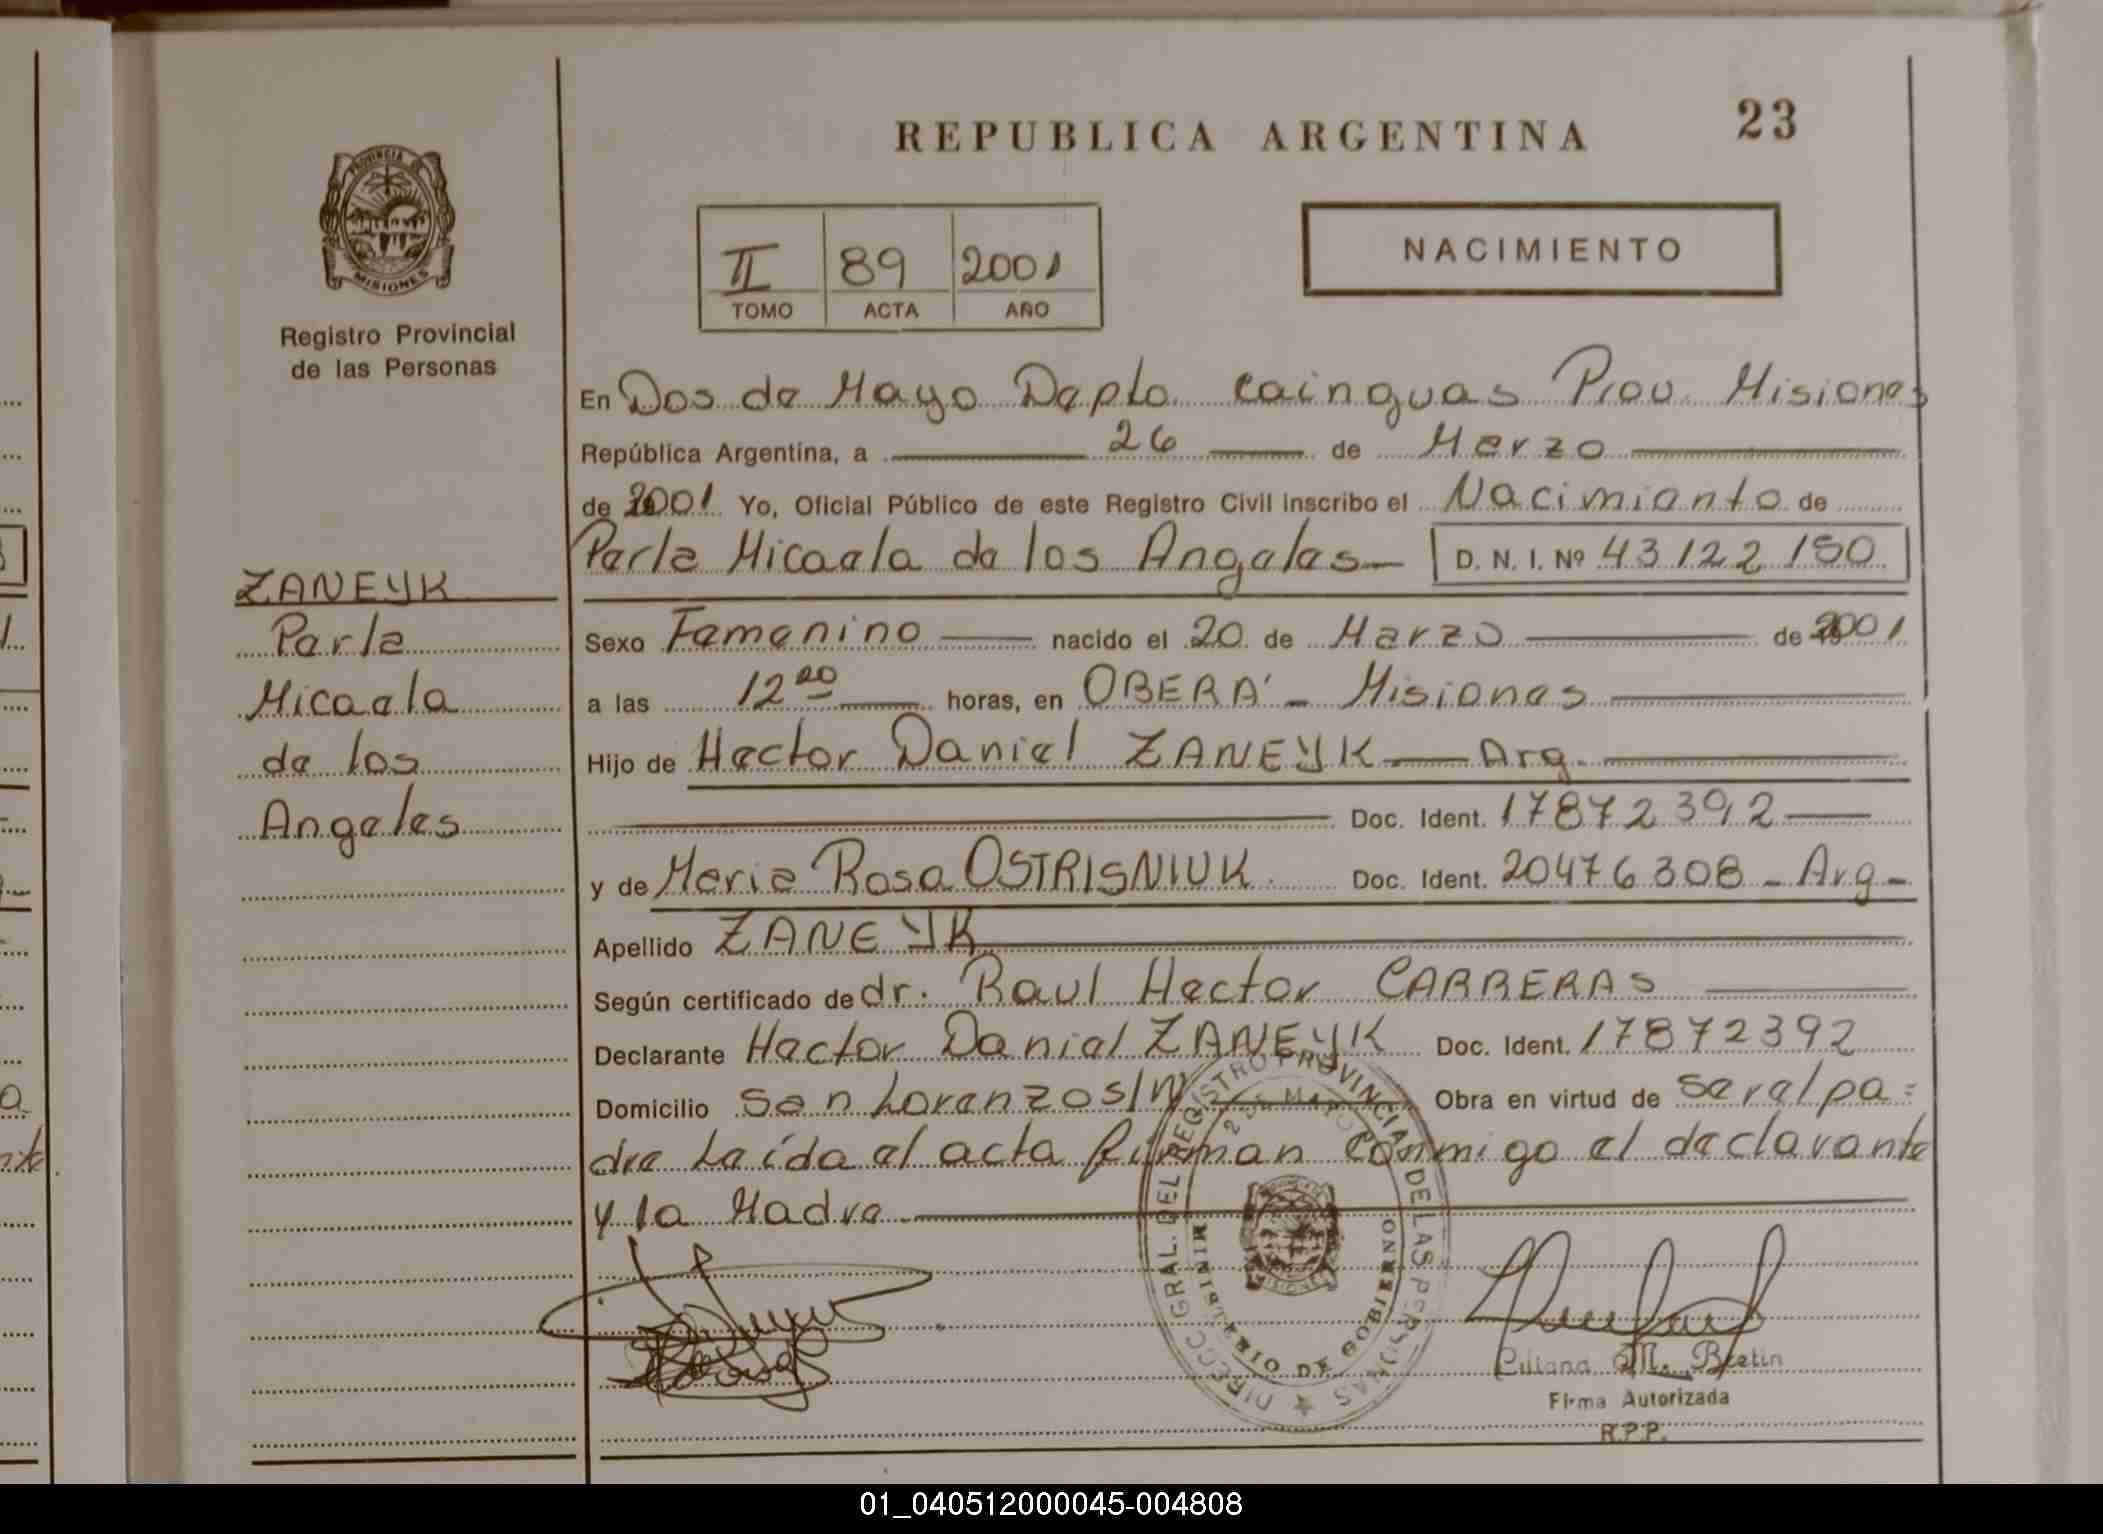 REPUBLICA ARGENTINA
23
PROVINCIA DE
MISIONES
Registro Provincial
de las Personas
II 89 2001
TOMO ACTA AÑO
NACIMIENTO
En Dos de Mayo Depto. Cainguas Prov. Misiones
República Argentina, a 26 de Marzo
de 2001 Yo, Oficial Público de este Registro Civil inscribo el Nacimiento de
Perla Micaela de los Angeles D. N. I. Nº 43122150
ZANEYK
Perla
Micaela
de los
Angeles
Sexo Femenino nacido el 20 de Marzo de 2001
a las 12 horas, en OBERÁ - Misiones
Hijo de Hector Daniel ZANEYK Arg.
Doc. Ident. 17872392
y de Maria Rosa OSTRISNIUK Doc. Ident. 20476308 - Arg -
Apellido ZANEYK
Según certificado de dr. Raul Hector CARRERAS
Declarante Hector Daniel ZANEYK Doc. Ident. 17872392
Domicilio San Lorenzo s/n Obra en virtud de ser el pa=
dre Leída el acta firman conmigo el declarante
y la Madre
DIRECC. GRAL. DEL REGISTRO PROVINCIAL DE LAS PERSONAS
2 DE MAYO
MINISTERIO DE GOBIERNO
Liliana M. Bretin
Firma Autorizada
R.P.P.
01_040512000045-004808